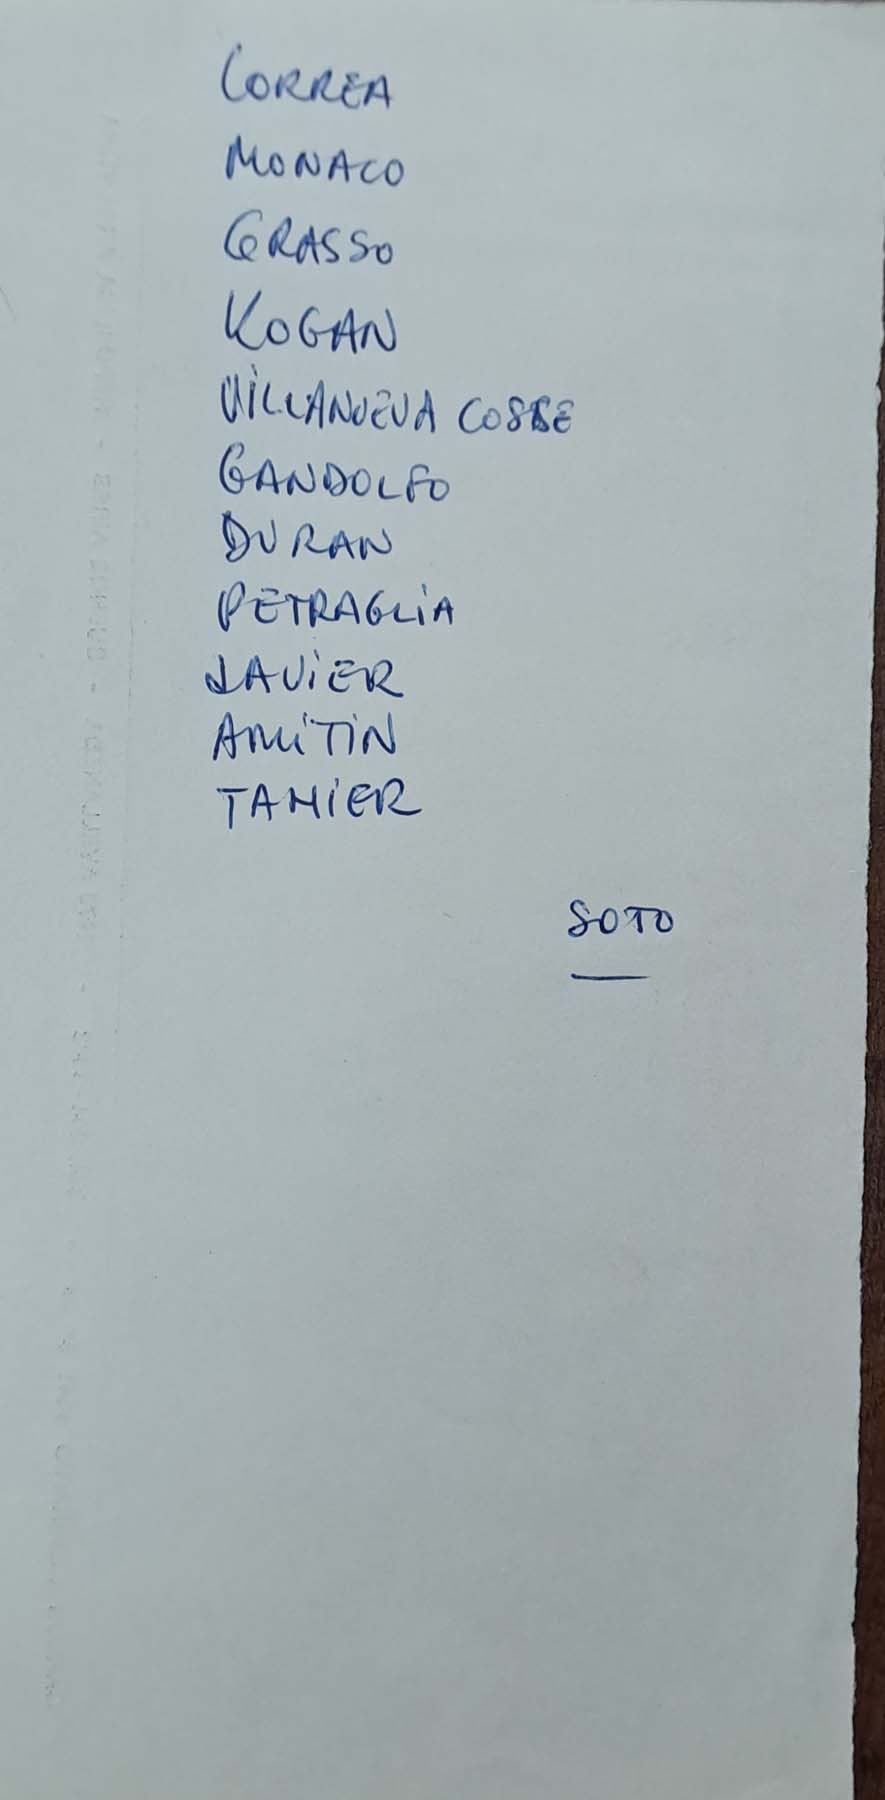 CORREA
MONACO
GRASSO
KOGAN
VILLANUEVA COSSE
GANDOLFO
DURAN
PETRAGLIA
JAVIER
AMITIN
TAHIER
SOTO